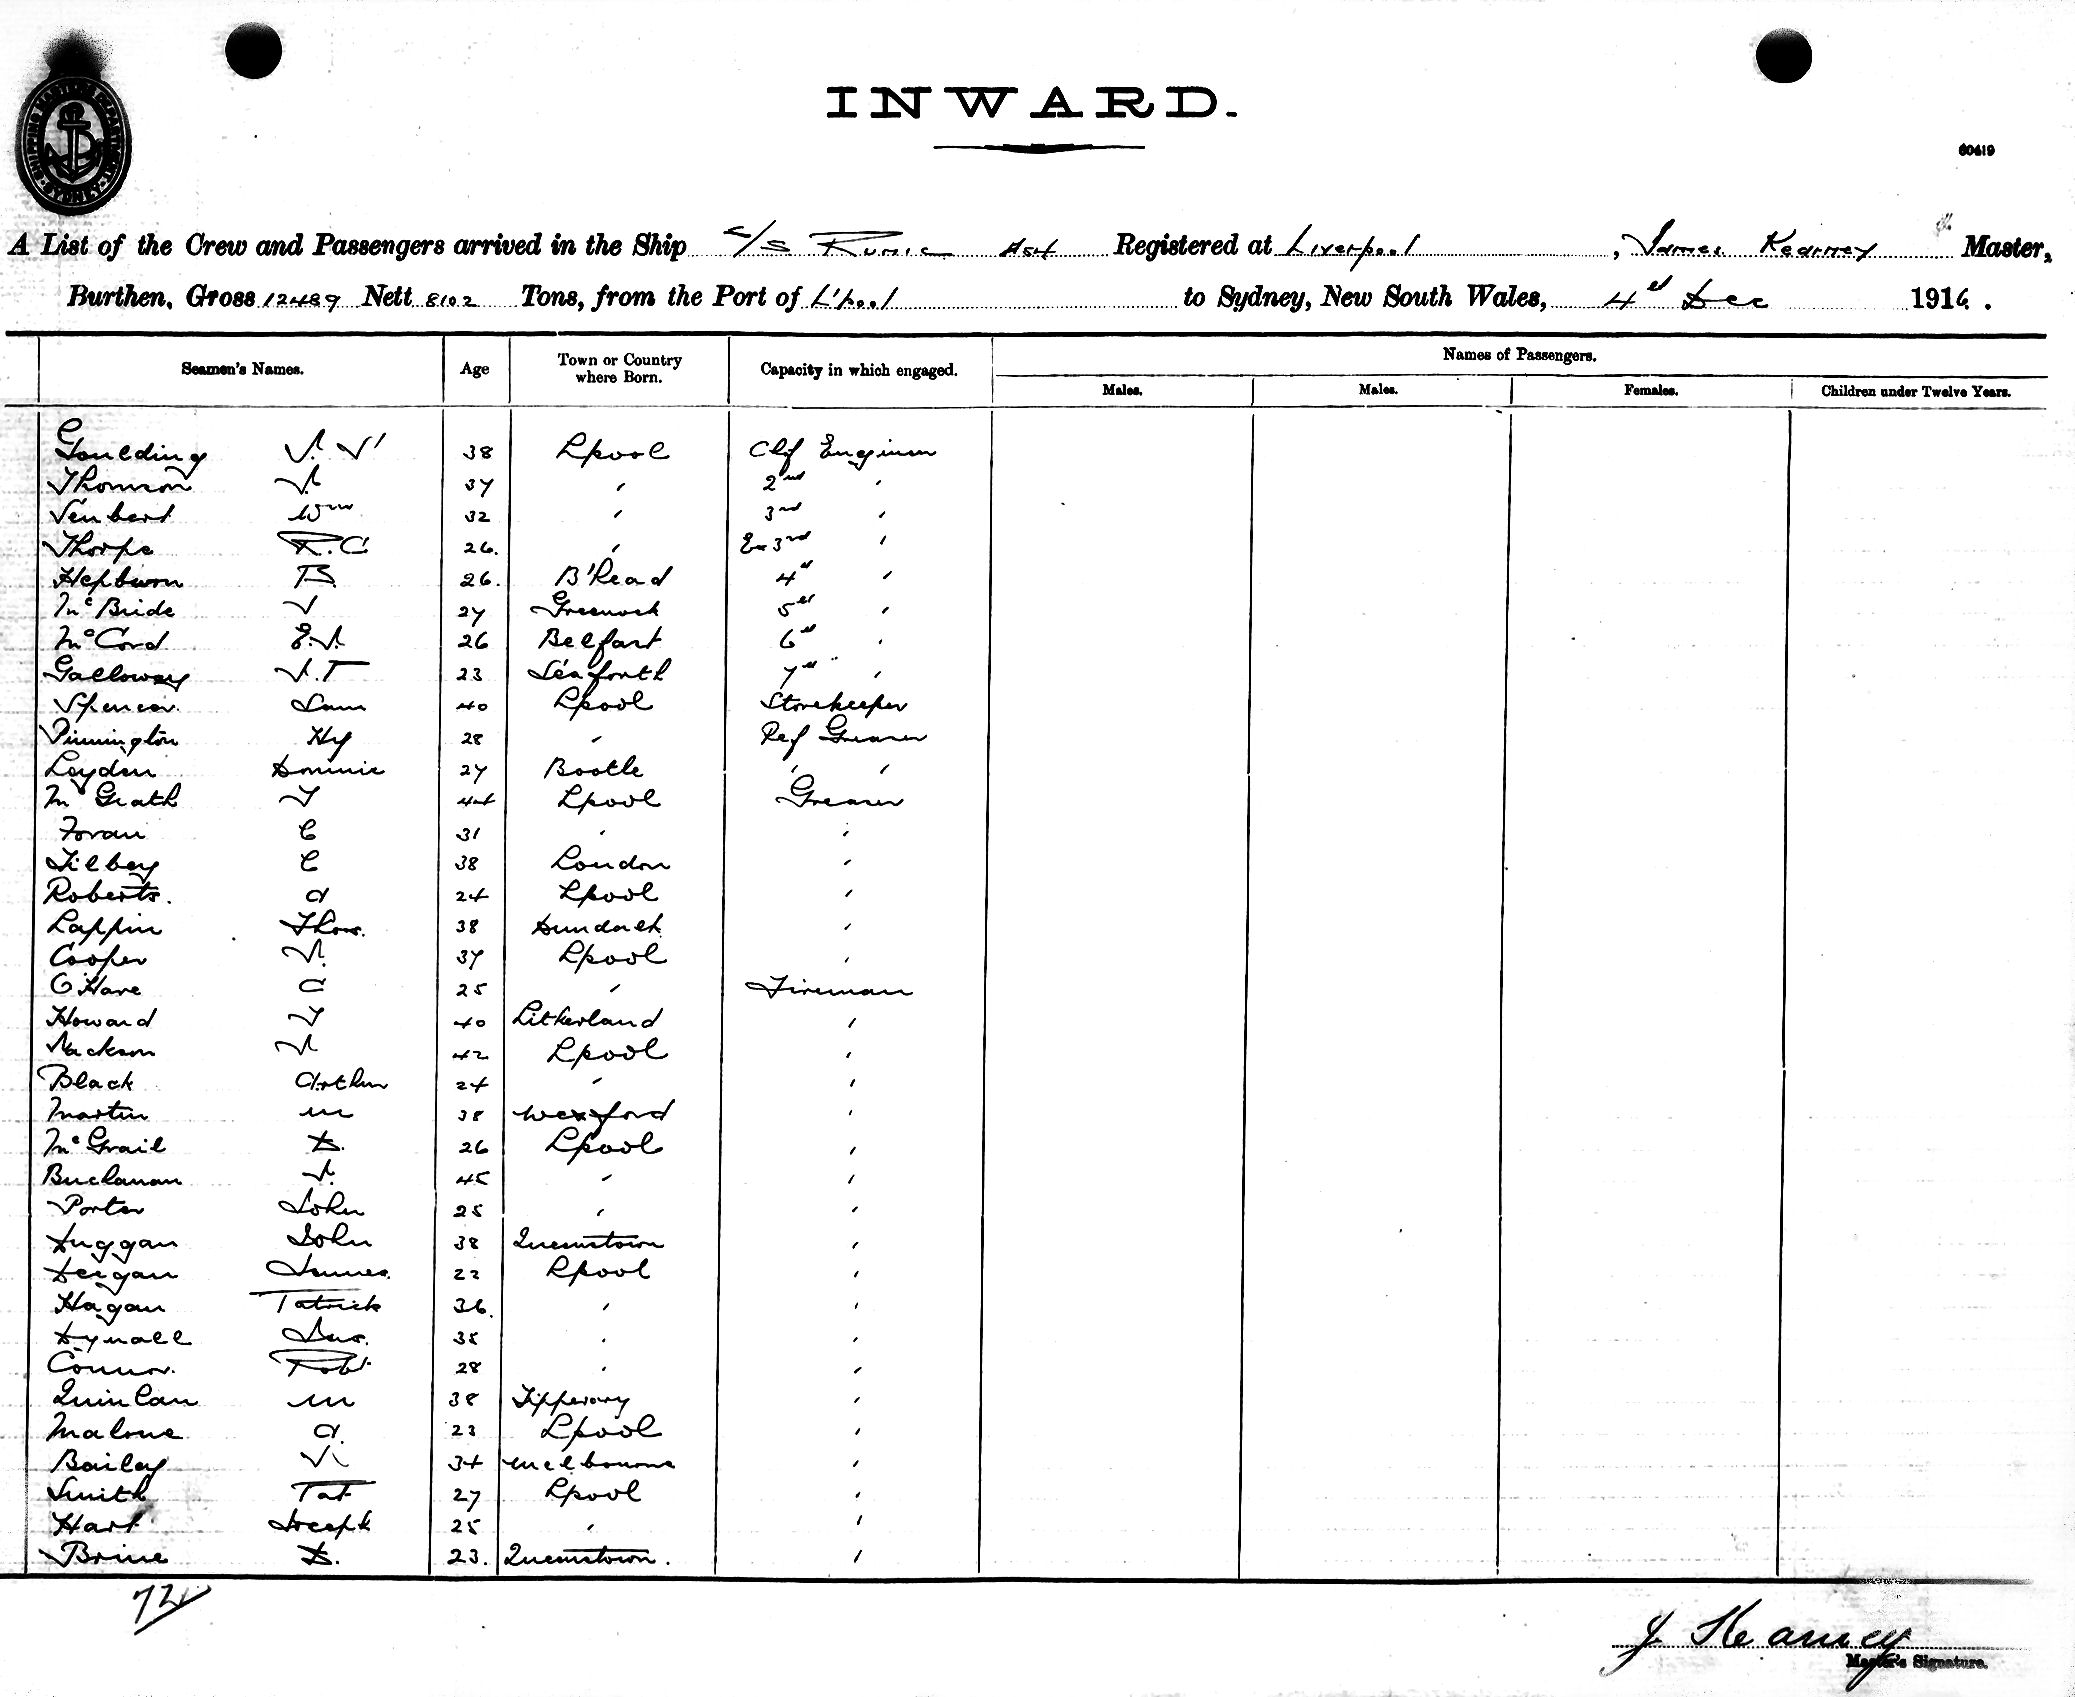 SHIPPING MASTERS DEPARTMENT SYDNEY
INWARD.
60419
A List of the Crew and Passengers arrived in the Ship S/S Runic Registered at Liverpool, James Kearney Master,
Burthen, Gross 12489 Nett 8102 Tons, from the Port of L'pool to Sydney, New South Wales, 4th Dec 1916.
Seamen's Names. Age Town or Country where Born. Capacity in which engaged. Names of Passengers.
Males. Males. Females. Children under Twelve Years.
Goulding J. J 38 Lpool Chf Engineer
Thomson J 37 " 2nd "
Wm 32 " 3rd "
Thorpe R.C 26. " Ex 3rd "
Hepburn B. 26. B'Head 4th "
McBride J 27 Greenock 5th "
McCord E.J. 26 Belfast 6th "
Galloway J.T 23 Seaforth 7th "
Spencer Sam 40 Lpool Storekeeper
Pinnington Hy 28 " Ref Greaser
Leyden Dominic 27 Bootle " "
McGrath T 44 Lpool Greaser
Foran C 31 " "
Tilbey C 38 London "
Roberts. A 24 Lpool "
Lappin Thos. 38 Dundalk "
Cooper J. 37 Lpool "
O'Hare C 25 " Fireman
Howard T 40 Litherland "
Jackson J 42 Lpool "
Black Arthur 24 " "
Martin M 38 Wexford "
McGrail D. 26 Lpool "
Buchanan J. 45 " "
Porter John 25 " "
Duggan John 38 Queenstown "
Deegan James 22 Lpool "
Hagan Patrick 36. " "
Dynall Jas. 35 " "
Connor. Robt 28 " "
Quinlan M 38 Tipperary "
Malone A. 23 Lpool "
Bailey J 34 Melbourne "
Smith Pat 27 Lpool "
Hart Joseph 25 " "
Brine D. 23. Queenstown. "
72
J Kearney
Master's Signature.